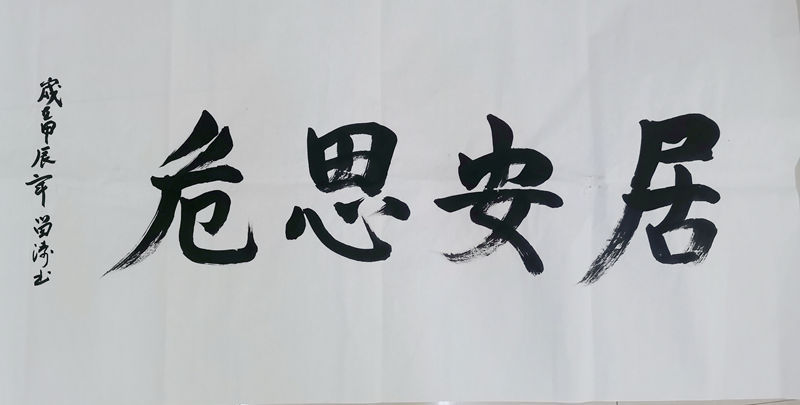 居安思危
歲在甲辰年 留濤书